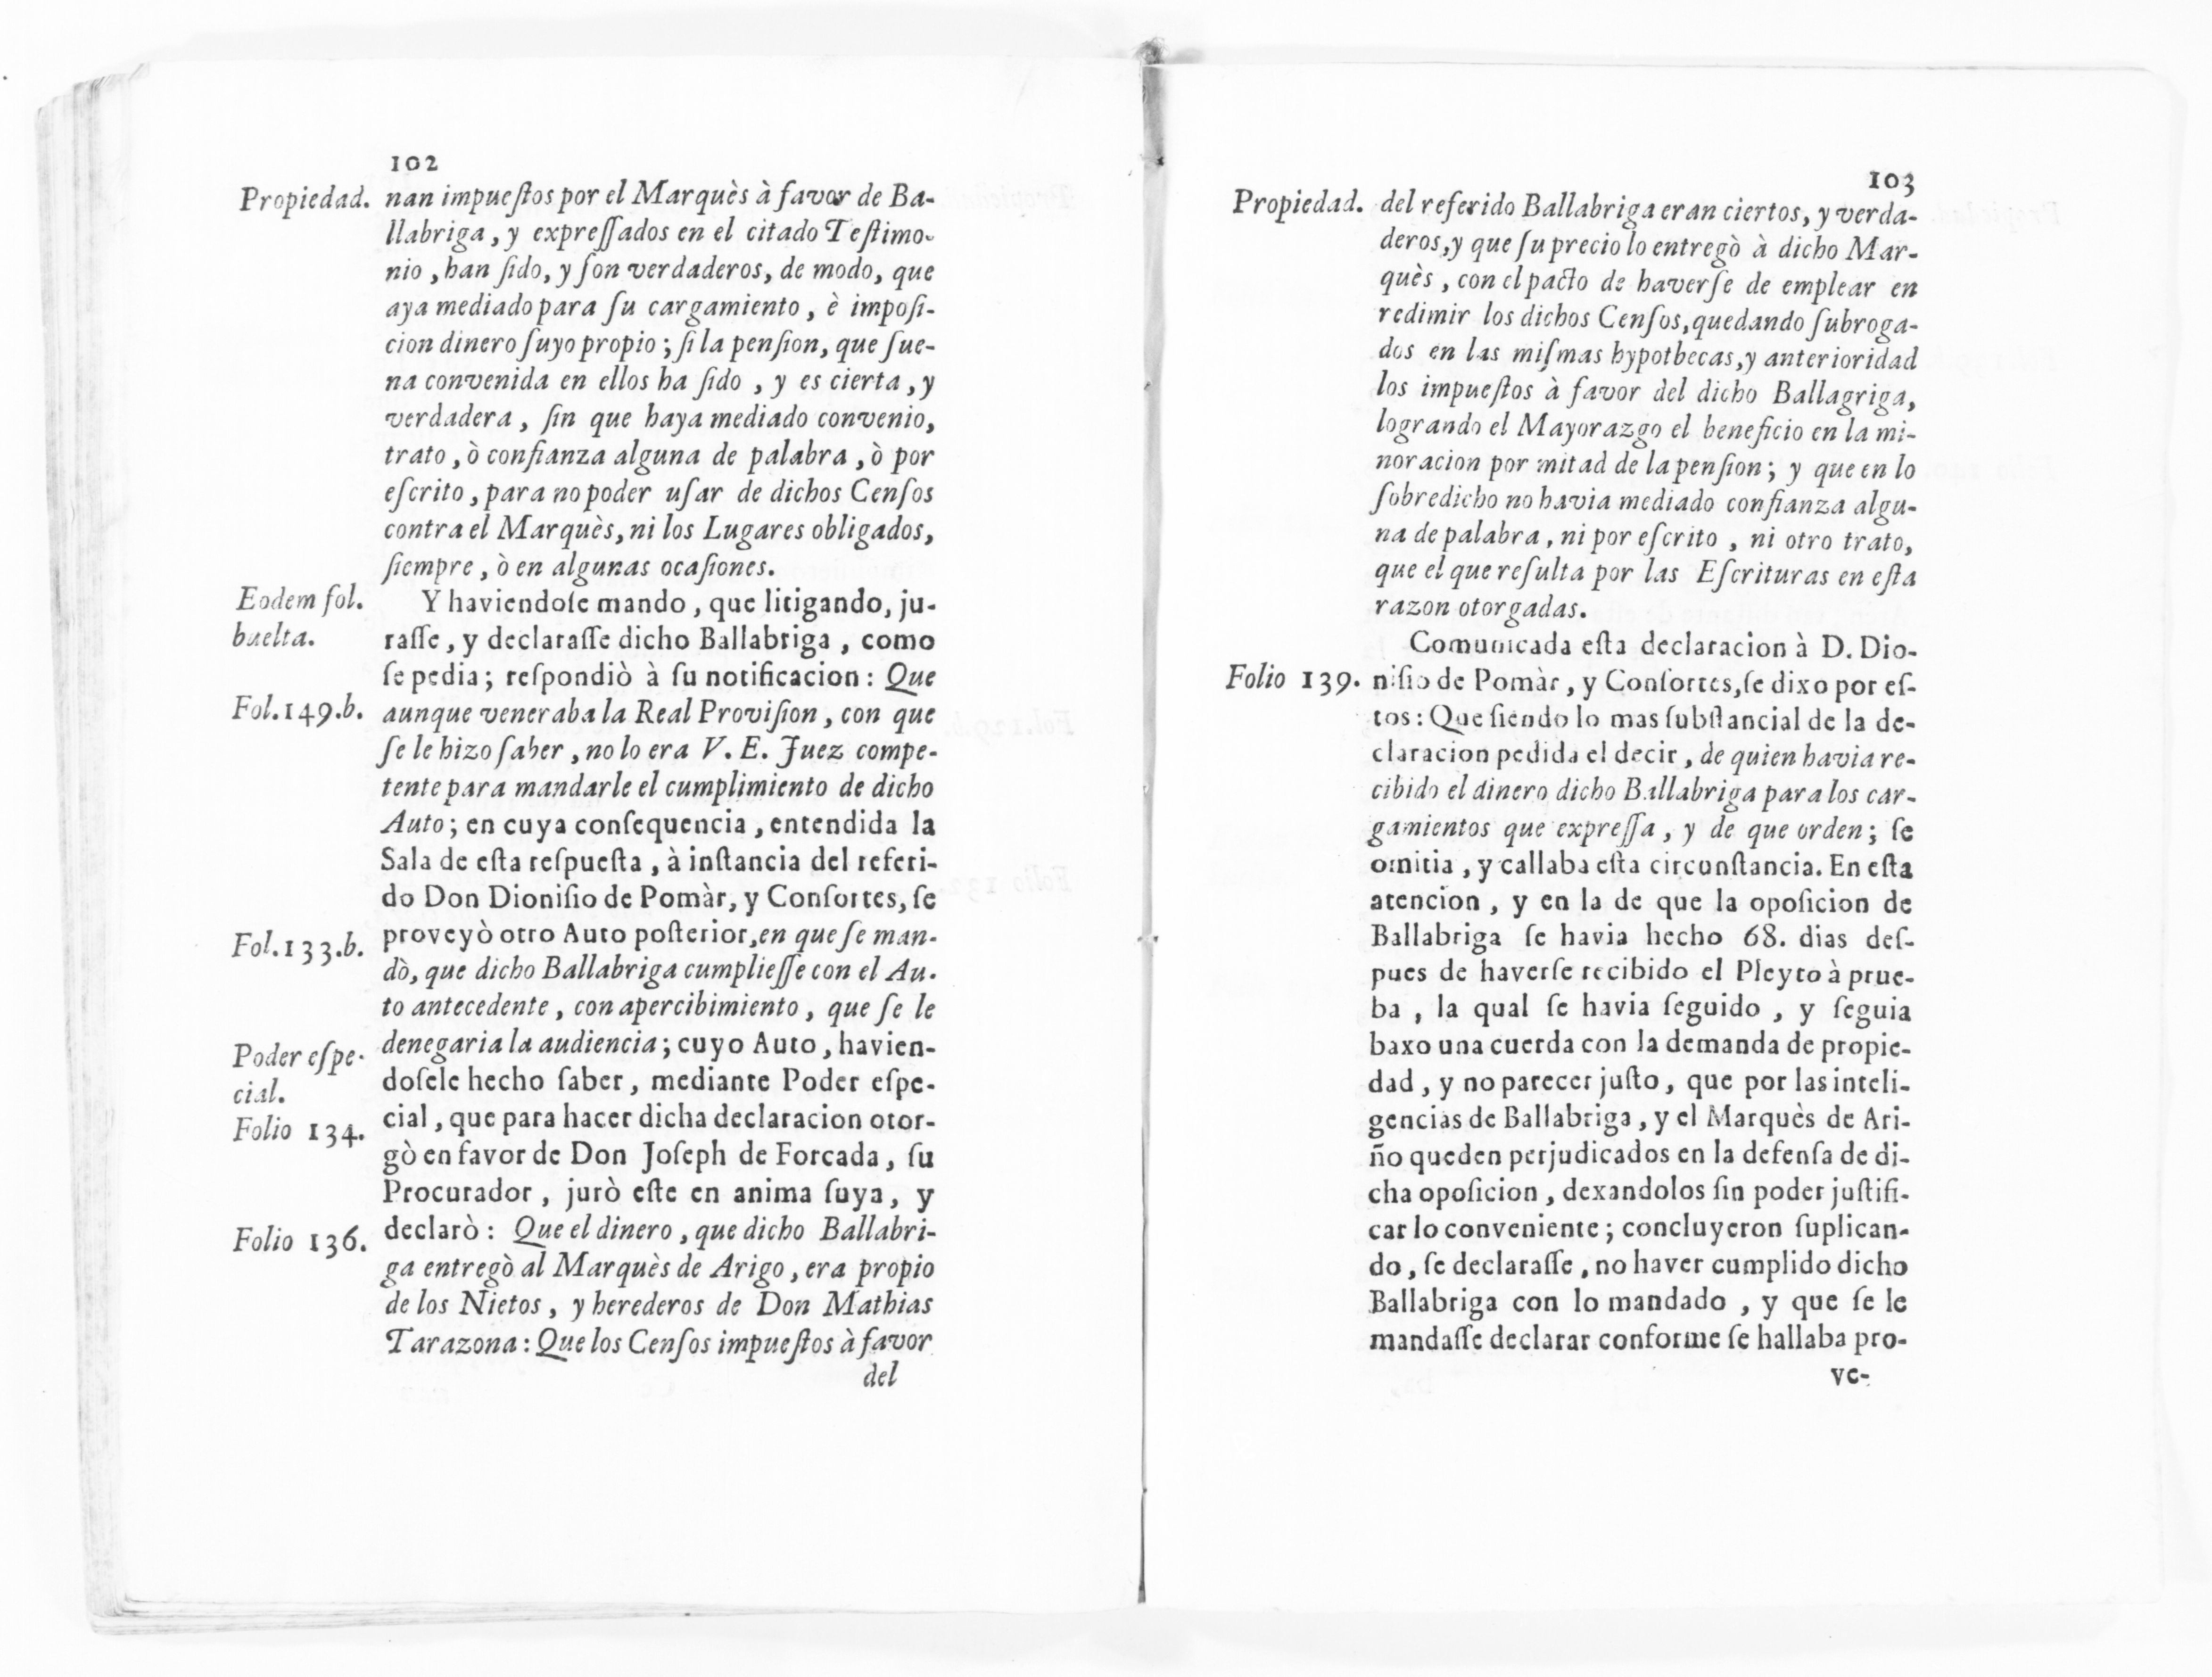 102
Propiedad. nan impueſtos por el Marquès à favor de Ba-
llabriga, y expreſſados en el citado Teſtimo-
nio, han ſido, y ſon verdaderos, de modo, que
aya mediado para ſu cargamiento, è impoſi-
cion dinero ſuyo propio; ſi la penſion, que ſue-
na convenida en ellos ha ſido, y es cierta, y
verdadera, ſin que haya mediado convenio,
trato, ò confianza alguna de palabra, ò por
eſcrito, para no poder uſar de dichos Cenſos
contra el Marquès, ni los Lugares obligados,
ſiempre, ò en algunas ocaſiones.
Eodem fol. Y haviendoſe mando, que litigando, ju-
buelta. raſſe, y declaraſſe dicho Ballabriga, como
ſe pedia; reſpondiò à ſu notificacion: Que
Fol.149.b. aunque veneraba la Real Proviſion, con que
ſe le hizo ſaber, no lo era V. E. Juez compe-
tente para mandarle el cumplimiento de dicho
Auto; en cuya conſequencia, entendida la
Sala de eſta reſpueſta, à inſtancia del referi-
do Don Dioniſio de Pomàr, y Conſortes, ſe
Fol.133.b. proveyò otro Auto poſterior, en que ſe man-
dò, que dicho Ballabriga cumplieſſe con el Au-
to antecedente, con apercibimiento, que ſe le
Poder eſpe- denegaria la audiencia; cuyo Auto, havien-
cial. doſele hecho ſaber, mediante Poder eſpe-
Folio 134. cial, que para hacer dicha declaracion otor-
gò en favor de Don Joſeph de Forcada, ſu
Procurador, jurò eſte en anima ſuya, y
Folio 136. declarò: Que el dinero, que dicho Ballabri-
ga entregò al Marquès de Arigo, era propio
de los Nietos, y herederos de Don Mathias
Tarazona: Que los Cenſos impueſtos à favor
del
103
Propiedad. del referido Ballabriga eran ciertos, y verda-
deros, y que ſu precio lo entregò à dicho Mar-
quès, con el pacto de haverſe de emplear en
redimir los dichos Cenſos, quedando ſubroga-
dos en las miſmas hypothecas, y anterioridad
los impueſtos à favor del dicho Ballagriga,
logrando el Mayorazgo el beneficio en la mi-
noracion por mitad de la penſion; y que en lo
ſobredicho no havia mediado confianza algu-
na de palabra, ni por eſcrito, ni otro trato,
que el que reſulta por las Eſcrituras en eſta
razon otorgadas.
Comunicada eſta declaracion à D. Dio-
Folio 139. niſio de Pomàr, y Conſortes, ſe dixo por eſ-
tos: Que ſiendo lo mas ſubſtancial de la de-
claracion pedida el decir, de quien havia re-
cibido el dinero dicho Ballabriga para los car-
gamientos que expreſſa, y de que orden; ſe
omitia, y callaba eſta circunſtancia. En eſta
atencion, y en la de que la opoſicion de
Ballabriga ſe havia hecho 68. dias deſ-
pues de haverſe recibido el Pleyto à prue-
ba, la qual ſe havia ſeguido, y ſeguia
baxo una cuerda con la demanda de propie-
dad, y no parecer juſto, que por las inteli-
gencias de Ballabriga, y el Marquès de Ari-
ño queden perjudicados en la defenſa de di-
cha opoſicion, dexandolos ſin poder juſtifi-
car lo conveniente; concluyeron ſuplican-
do, ſe declaraſſe, no haver cumplido dicho
Ballabriga con lo mandado, y que ſe le
mandaſſe declarar conforme ſe hallaba pro-
ve-